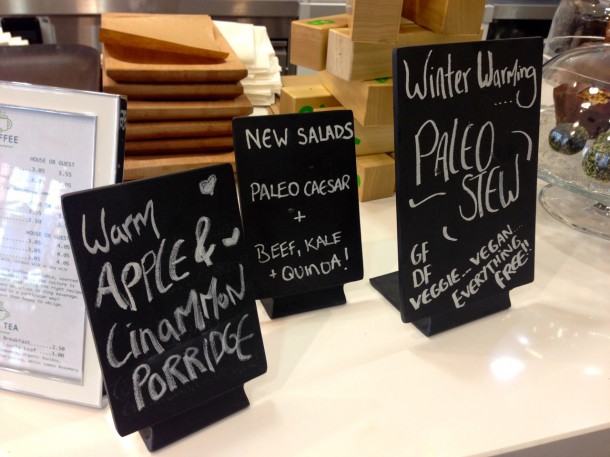 Warm
APPLE &
Cinammon
PORRIDGE
NEW SALADS
PALEO CAESAR
+
BEEF, KALE
+ QUINOA!
Winter Warming
....
PALEO
STEW
GF
DF
VEGGIE... VEGAN...
EVERYTHING
FREE!!
HOUSE OR GUEST
TEA